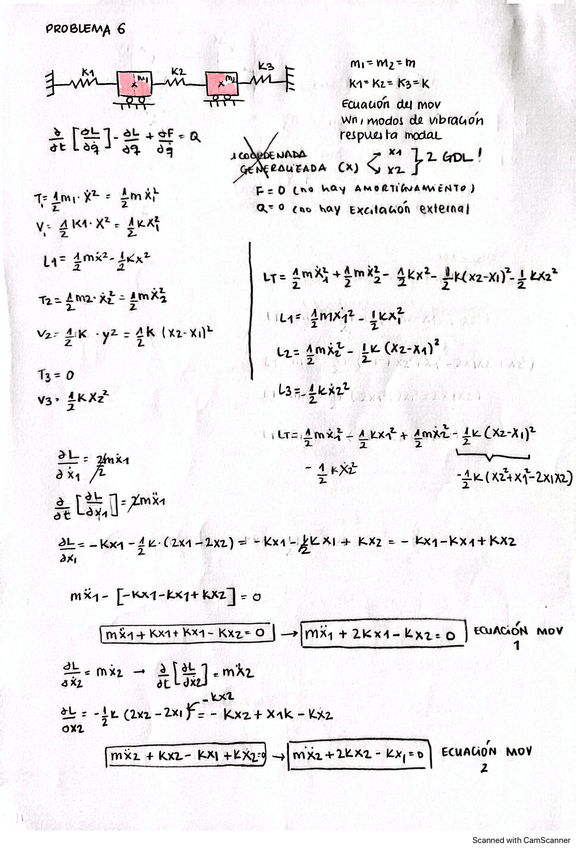 PROBLEMA 6
K1 m1 K2 m2 K3
m1 = m2 = m
K1 = K2 = K3 = K
Ecuación del mov
Wn, modos de vibración
respuesta modal
∂/∂t [∂L/∂q̇] - ∂L/∂q + ∂F/∂q̇ = Q
1 COORDENADA
GENERALIZADA (X) < x1 x2 ] 2 GDL!
F = 0 (no hay AMORTIGUAMIENTO)
Q = 0 (no hay Excitación external)
T1 = 1/2 m1 · ẋ² = 1/2 m ẋ1²
V1 = 1/2 K1 · X² = 1/2 K X1²
L1 = 1/2 mẋ² - 1/2 Kx²
T2 = 1/2 m2 · ẋ2² = 1/2 mẋ2²
V2 = 1/2 K · y² = 1/2 K (x2-x1)²
T3 = 0
V3 = 1/2 K X2²
LT = 1/2 mẋ1² + 1/2 mẋ2² - 1/2 Kx² - 1/2 K(x2-x1)² - 1/2 Kx2²
L1 = 1/2 mẋ1² - 1/2 Kx1²
L2 = 1/2 mẋ2² - 1/2 K (x2-x1)²
L3 = - 1/2 Kẋ2²
LT = 1/2 mẋ1² - 1/2 Kx1² + 1/2 mẋ2² - 1/2 K (x2-x1)²
- 1/2 Kẋ2²
-1/2 K (x2²+x1²-2x1x2)
∂L/∂ẋ1 = 2/2 mẋ1
∂/∂t [∂L/∂ẋ1] = 2mẍ1
∂L/∂x1 = -Kx1 - 1/2 K · (2x1 - 2x2) = -Kx1 - 1/2 K x1 + Kx2 = - Kx1 - Kx1 + Kx2
mẍ1 - [-Kx1 - Kx1 + Kx2] = 0
mẍ1 + Kx1 + Kx1 - Kx2 = 0 → mẍ1 + 2Kx1 - Kx2 = 0 ECUACIÓN MOV
1
∂L/∂ẋ2 = mẋ2 → ∂/∂t [∂L/∂ẋ2] = mẍ2
∂L/∂x2 = - 1/2 K (2x2 - 2x1) - Kx2 = - Kx2 + x1K - Kx2
mẍ2 + Kx2 - Kx1 + Kx2 = 0 → mẍ2 + 2Kx2 - Kx1 = 0 ECUACIÓN MOV
2
Scanned with CamScanner